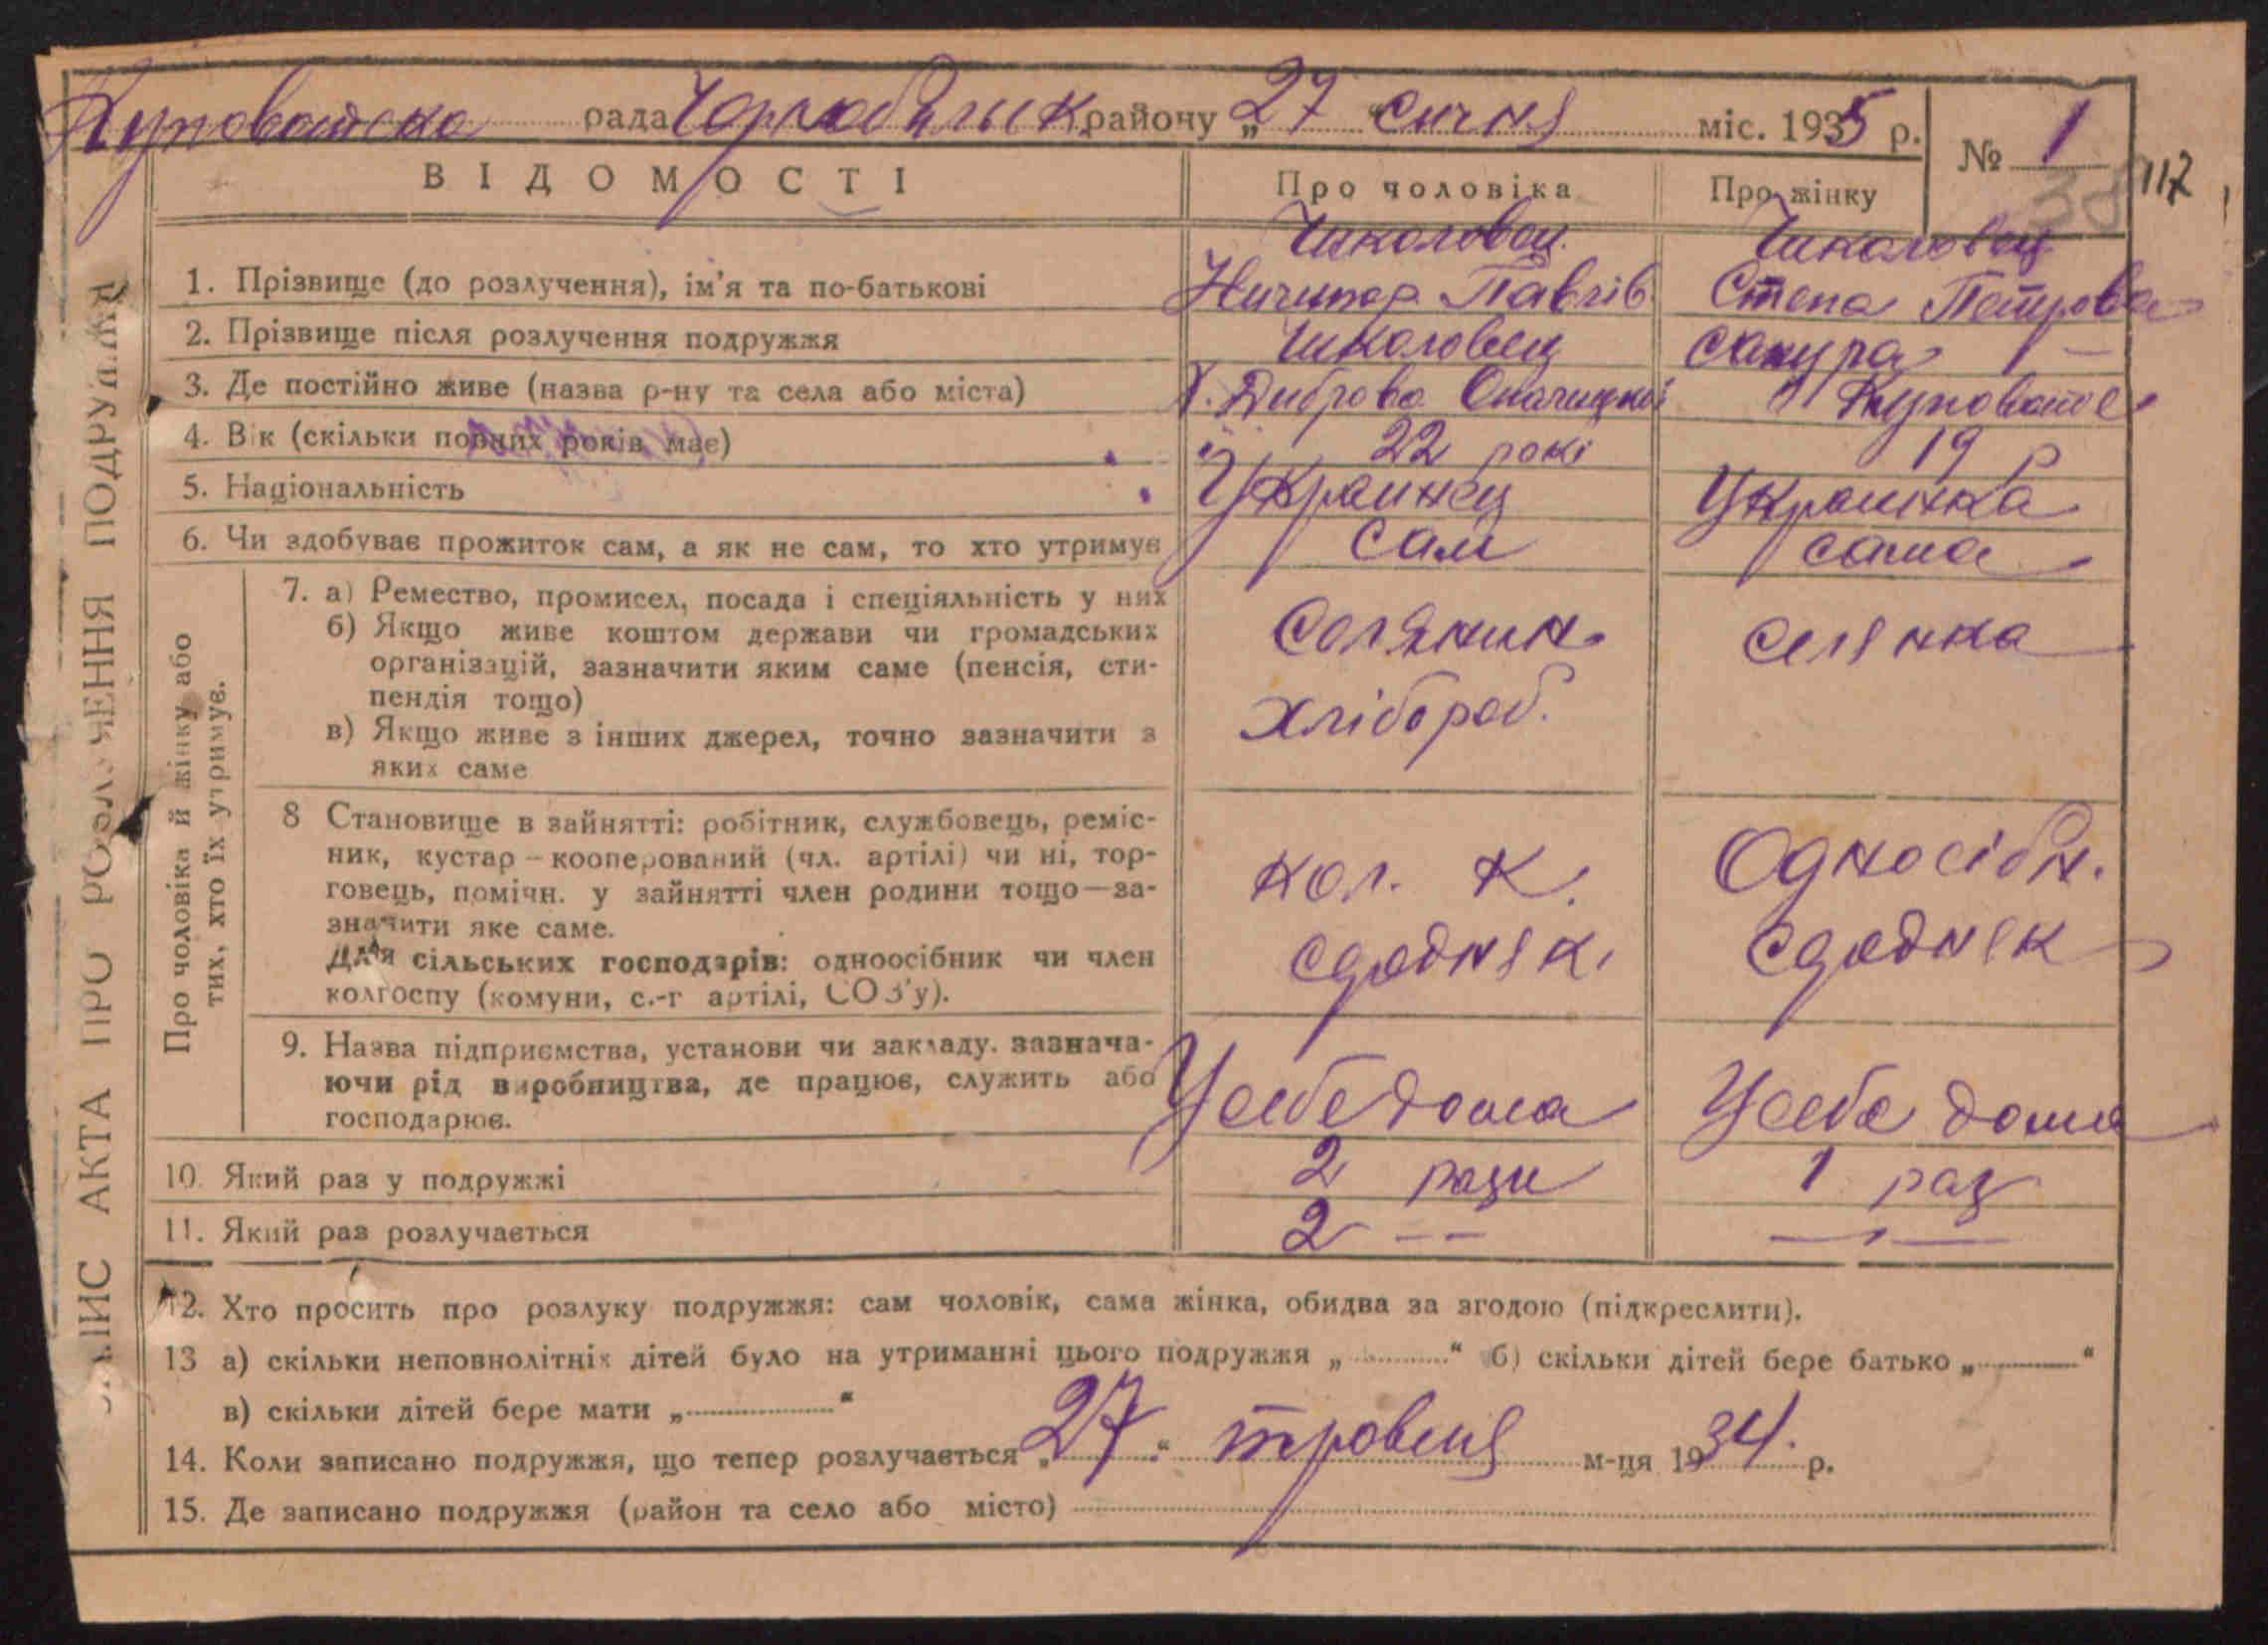 Куповатска рада Чорнобильск району „ 27 “ сичня міс. 1935 р.
№ 1
38
117
ВІДОМОСТІ
Про чоловіка
Про жінку
1. Прізвище (до розлучення), ім'я та по-батькові
Чиколовец Ничипор Павлів.
Чиколовец Степа Петрова
2. Прізвище після розлучення подружжя
Чиколовец
3. Де постійно живе (назва р-ну та села або міста)
Х. Диброва Опачицкої
Куповатое
4. Вік (скільки повних років має)
22 рокі
19 р
5. Національність
Украинец
Украинка
6. Чи здобуває прожиток сам, а як не сам, то хто утримує
сам
сама
Про чоловіка й жінку або
тих, хто їх утримує.
7. а) Ремество, промисел, посада і спеціяльність у них
б) Якщо живе коштом держави чи громадських
організацій, зазначити яким саме (пенсія, сти-
пендія тощо)
в) Якщо живе з інших джерел, точно зазначити з
яких саме
Солянин
хлібороб.
селянка
8 Становище в зайнятті: робітник, службовець, реміс-
ник, кустар – кооперований (чл. артілі) чи ні, тор-
говець, помічн. у зайнятті член родини тощо—за-
значити яке саме.
Для сільських господарів: одноосібник чи член
колгоспу (комуни, с.-г артілі, СОЗ'у).
кол. к.
сдодняк.
Односібн.
сдодняк
9. Назва підприємства, установи чи закладу, зазнача-
ючи рід виробництва, де працює, служить або
господарює.
У себе дома
У себе дома
10. Який раз у подружжі
2 рази
1 раз
11. Який раз розлучається
2 — —
— , —
12. Хто просить про розлуку подружжя: сам чоловік, сама жінка, обидва за згодою (підкреслити).
13 а) скільки неповнолітніх дітей було на утриманні цього подружжя „ ........ “ б) скільки дітей бере батько „ ........ “
в) скільки дітей бере мати „ ........ “
14. Коли записано подружжя, що тепер розлучається „ 27 “ тровеня м-ця 1934. р.
15. Де записано подружжя (район та село або місто)
ЗАПИС АКТА ПРО РОЗЛУЧЕННЯ ПОДРУЖЖЯ